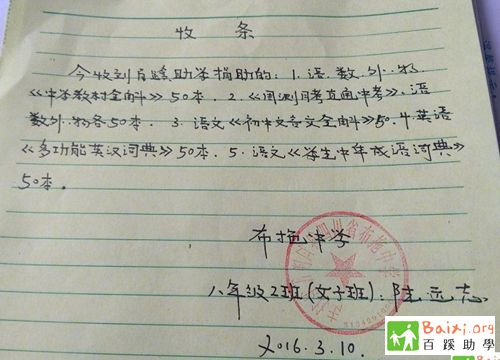 收 条
今收到百蹊助学捐助的：1.语.数.外.物
《中学教材全解》50本．2.《周测月考直通中考》．语
数外.物各50本．3.语文《初中文言文全解》50．4.英语
《多功能英汉词典》50本．5.语文《学生中年成语词典》
50本．
布拖中学
八年级2班(女子班)：陆远志
2016.3.10.
四川省布拖中学
Baixi.org
百蹊助學